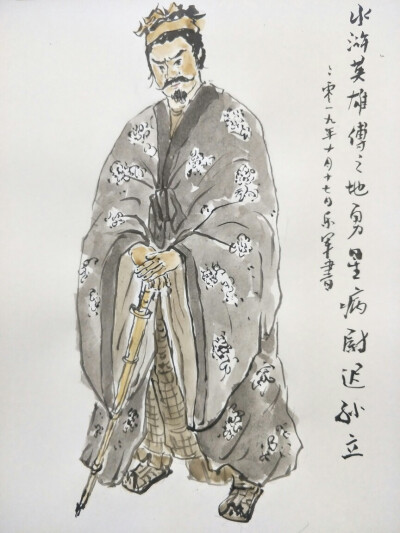 水浒英雄傅之地勇星病尉迟孙立
二零一九年十月十七日乐军书